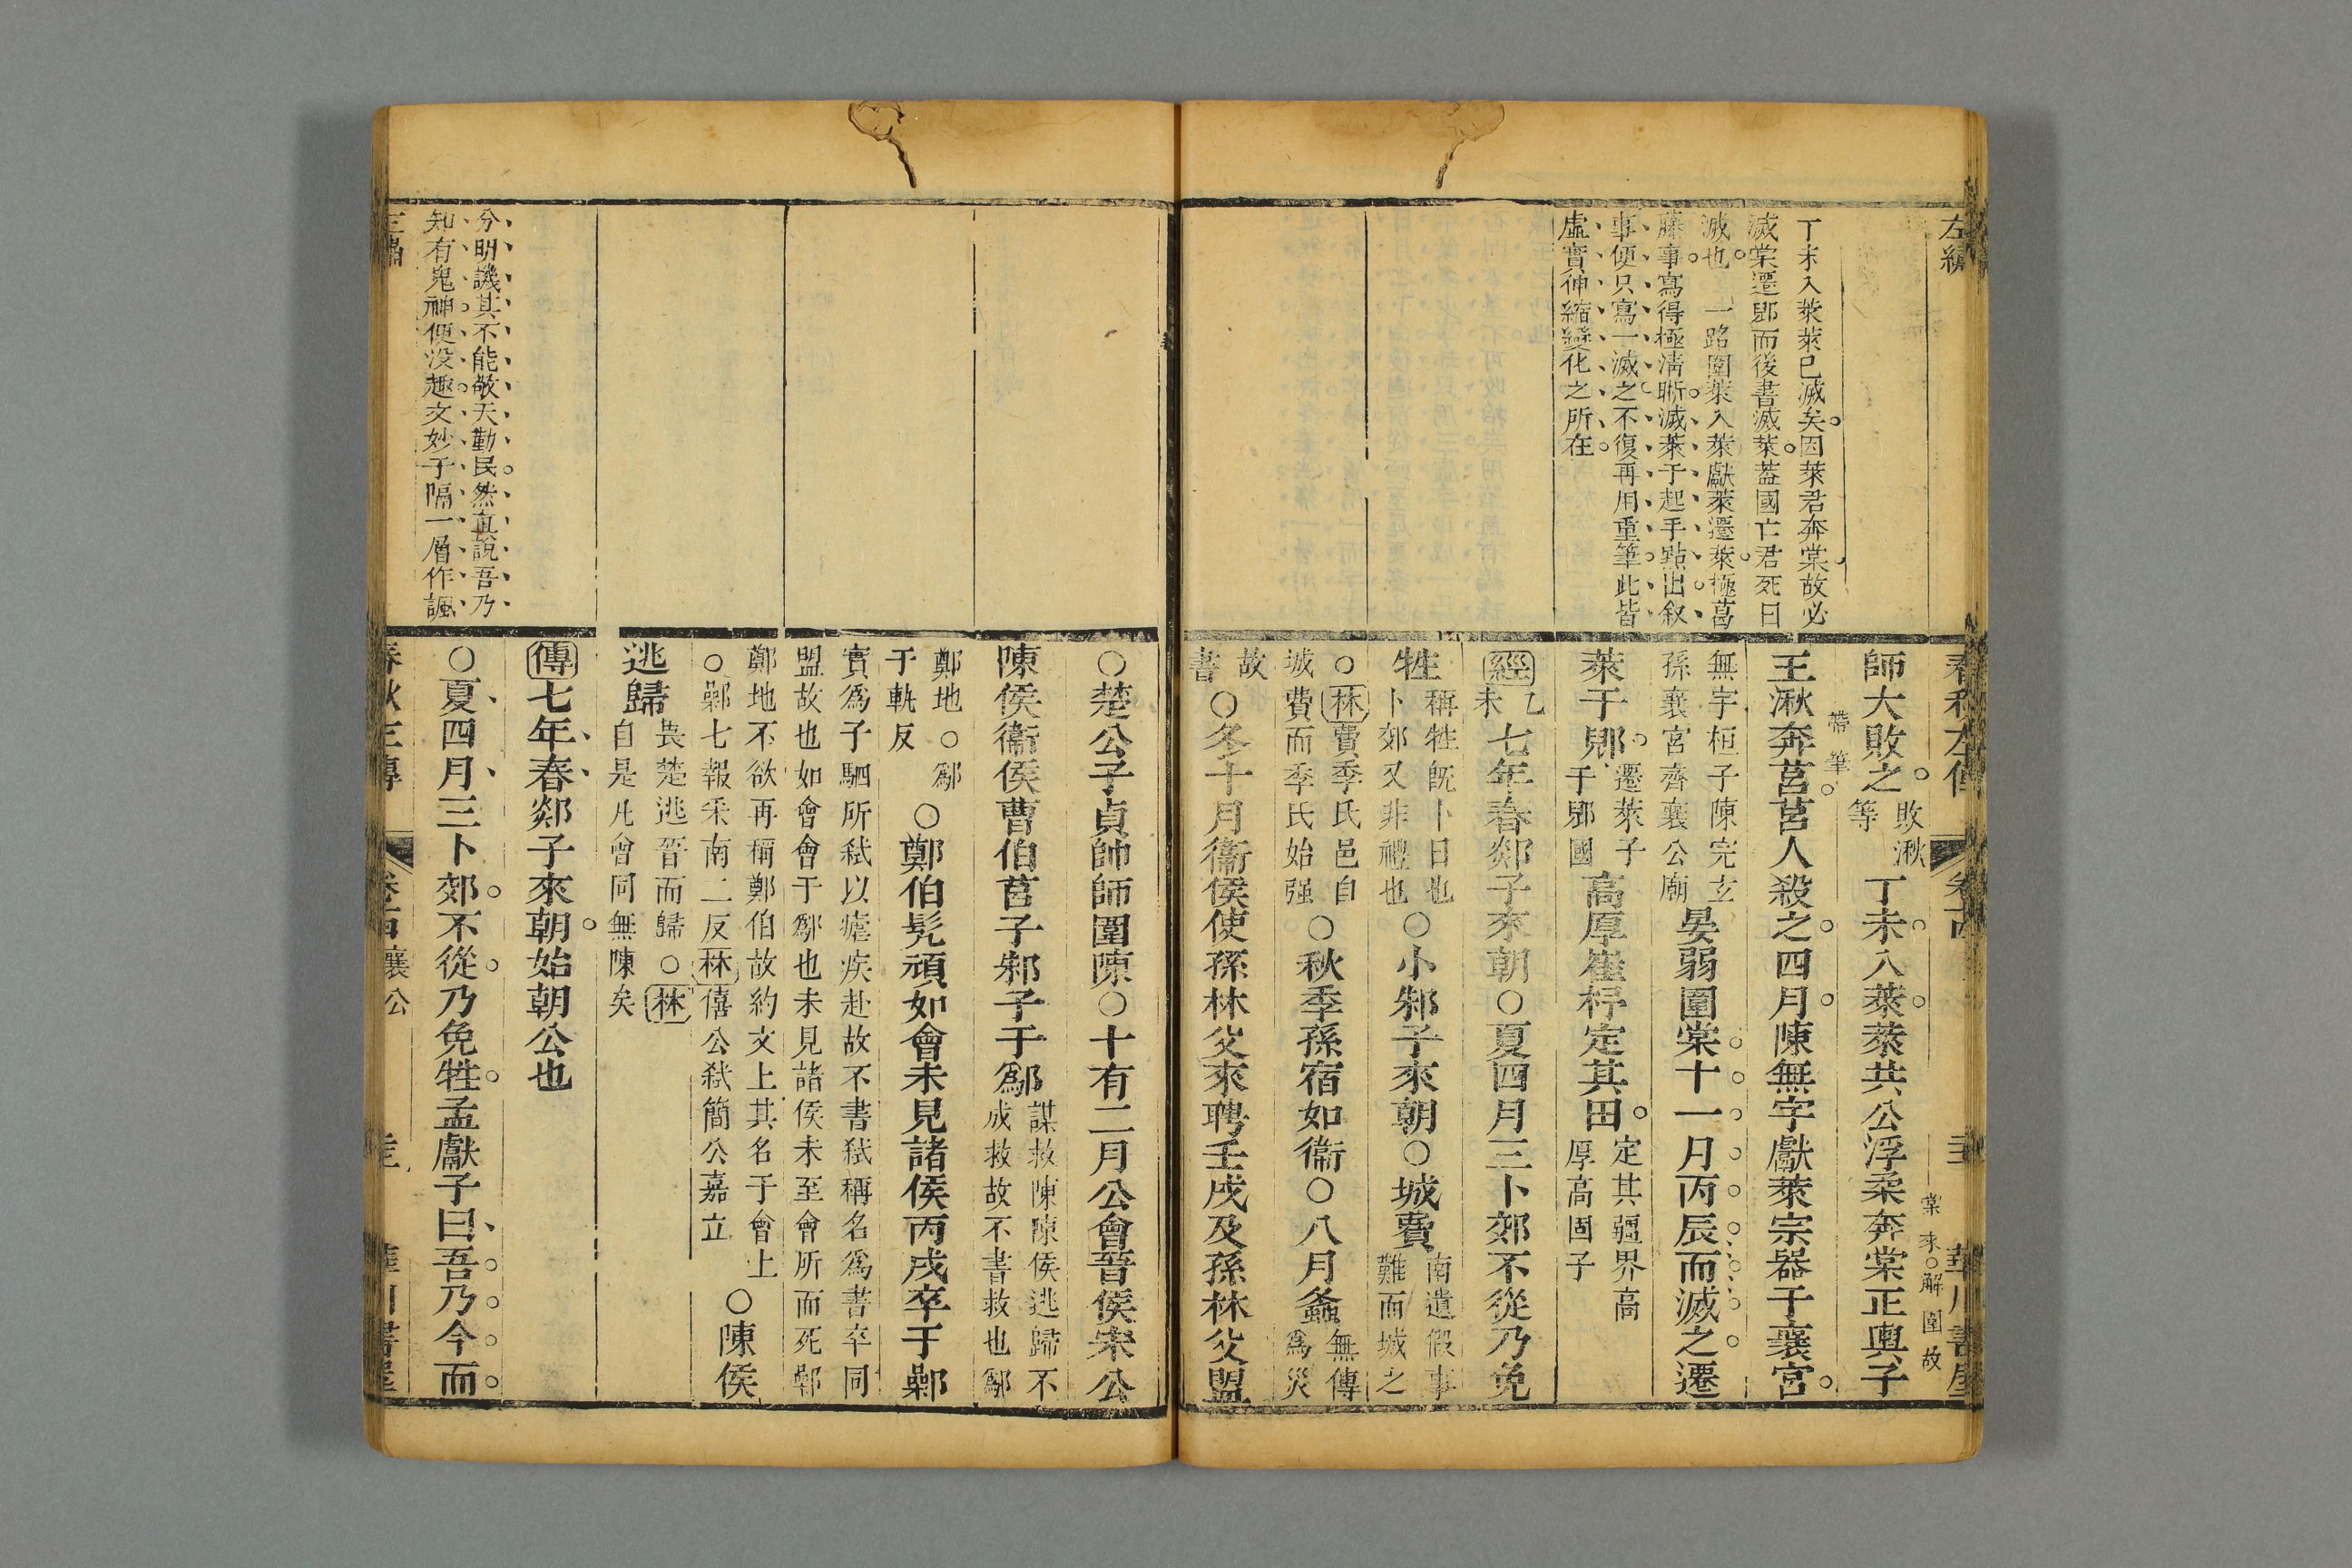 左繡
丁未入萊萊已滅矣因萊君奔棠故必
滅棠遷郳而後書滅萊葢國亡君死曰
滅也 一路圍萊入萊獻萊遷萊極葛
藤事寫得極淸晣滅萊于起手點出叙
事便只寫一滅之不復再用重筆此皆
虛實伸縮變化之所在
春秋左傳 卷十四 華川書屋
棠來○解圍故
師大敗之敗湫等丁未入萊萊共公浮柔奔棠正輿子
帶筆
王湫奔莒莒人殺之四月陳無宇獻萊宗器于襄宮
無宇桓子陳完玄孫襄宮齊襄公廟晏弱圍棠十一月丙辰而滅之遷
萊于郳遷萊子于郳國高厚崔杼定其田定其疆界高厚高固子
經乙未七年春郯子來朝○夏四月三卜郊不從乃免
牲稱牲旣卜日也卜郊又非禮也○小邾子來朝○城費南遺假事難而城之
○林費季氏邑自城費而季氏始强○秋季孫宿如衞○八月螽無傳爲災
故書○冬十月衞侯使孫林父來聘壬戌及孫林父盟
○楚公子貞帥師圍陳○十有二月公會晉侯宋公
陳侯衞侯曹伯莒子邾子于鄬謀救陳陳侯逃歸不成救故不書救也鄬
鄭地○鄬于軌反○鄭伯髡頑如會未見諸侯丙戌卒于鄵
實爲子駟所弑以瘧疾赴故不書弑稱名爲書卒同
盟故也如會會于鄬也未見諸侯未至會所而死鄵
鄭地不欲再稱鄭伯故約文上其名于會上
○鄵七報釆南二反林僖公弑簡公嘉立○陳侯
逃歸畏楚逃晉而歸○林自是凡會同無陳矣
傳七年春郯子來朝始朝公也
○夏四月三卜郊不從乃免牲孟獻子曰吾乃今而
分明譏其不能敬天勤民然直說吾乃
知有鬼神便没趣文妙于隔一層作諷
襄公